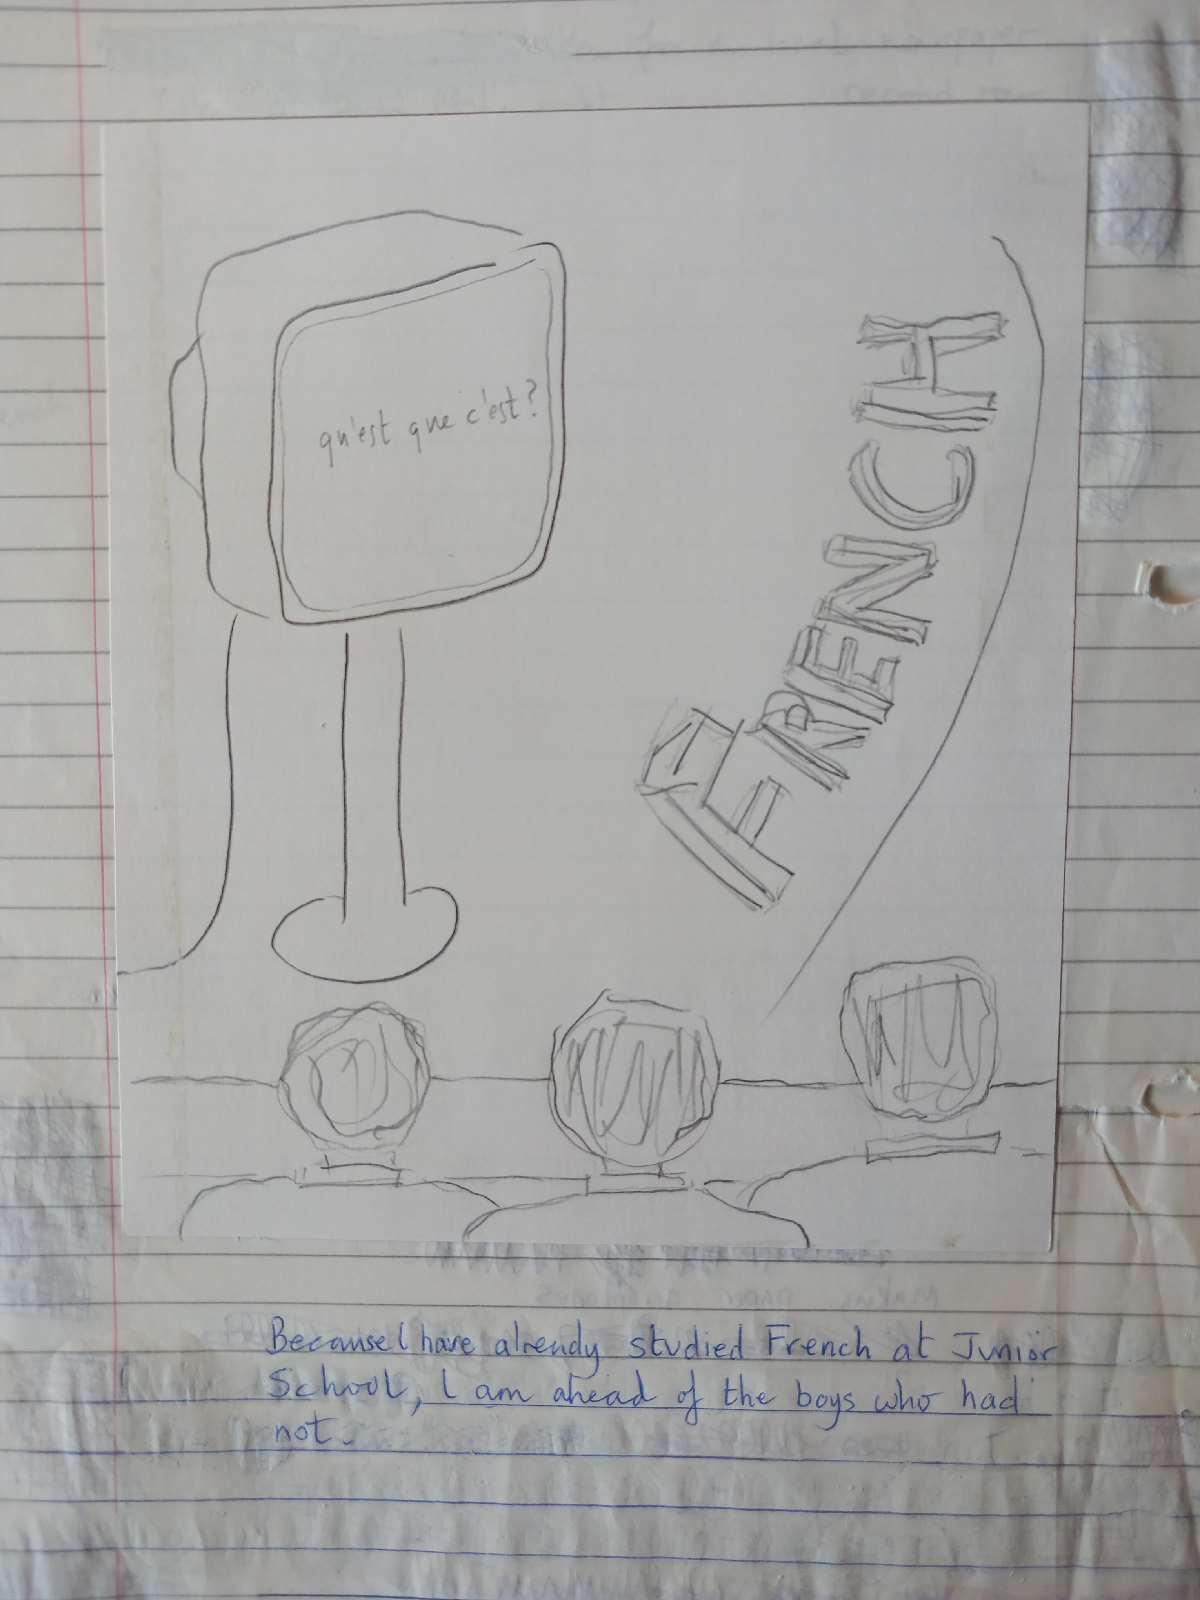 qu'est que c'est?
FRENCH
Because I have already studied French at Junior
School, I am ahead of the boys who had
not.